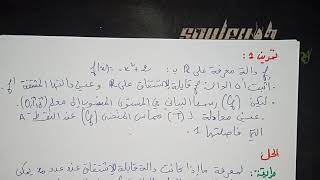 تمرين 1:
f دالة معرفة على R بـ: f(x) = -x² + 2
أثبت أن الدالة f قابلة للاشتقاق على R وعين دالتها المشتقة f'
ليكن (Cf) رسمها البياني في المستوي المنسوب إلى معلم
عين معادلة لـ (T) مماس المنحنى (Cf) عند النقطة A
التي فاصلتها 1
الحل
لمعرفة ما إذا كانت دالة قابلة للاشتقاق عند عدد ما يكفي